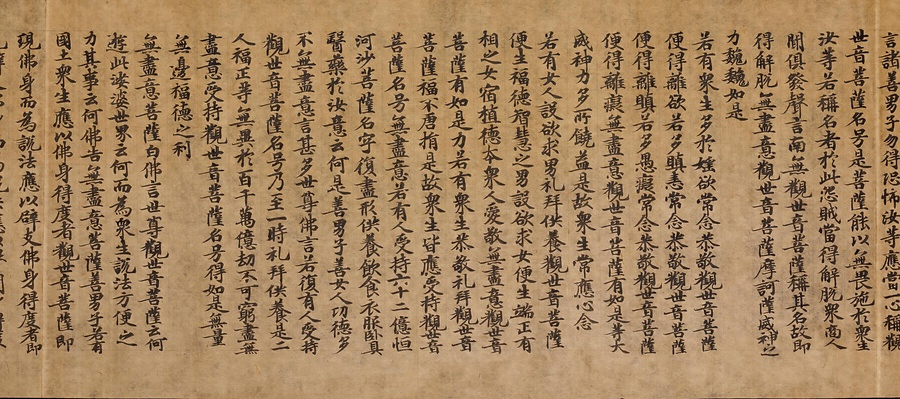 言諸善男子勿得恐怖汝等應當一心稱觀
世音菩薩名号是菩薩能以無畏施於衆生
汝等若稱名者於此怨賊當得解脫衆商人
聞俱發聲言南無觀世音菩薩稱其名故即
得解脫無盡意觀世音菩薩摩訶薩威神之
力巍巍如是
若有衆生多於婬欲常念恭敬觀世音菩薩
便得離欲若多瞋恚常念恭敬觀世音菩薩
便得離瞋若多愚癡常念恭敬觀世音菩薩
便得離癡無盡意觀世音菩薩有如是等大
威神力多所饒益是故衆生常應心念
若有女人設欲求男礼拜供養觀世音菩薩
便生福德智慧之男設欲求女便生端正有
相之女宿植德本衆人愛敬無盡意觀世音
菩薩有如是力若有衆生恭敬礼拜觀世音
菩薩福不唐捐是故衆生皆應受持觀世音
菩薩名号無盡意若有人受持六十二億恒
河沙菩薩名字復盡形供養飲食衣服卧具
醫藥於汝意云何是善男子善女人功德多
不無盡意言甚多世尊佛言若復有人受持
觀世音菩薩名号乃至一時礼拜供養是二
人福正等無異於百千萬億劫不可窮盡無
盡意受持觀世音菩薩名号得如是無量
無邊福德之利
無盡意菩薩白佛言世尊觀世音菩薩云何
遊此娑婆世界云何而為衆生說法方便之
力其事云何佛告無盡意菩薩善男子若有
國土衆生應以佛身得度者觀世音菩薩即
現佛身而為說法應以辟支佛身得度者即